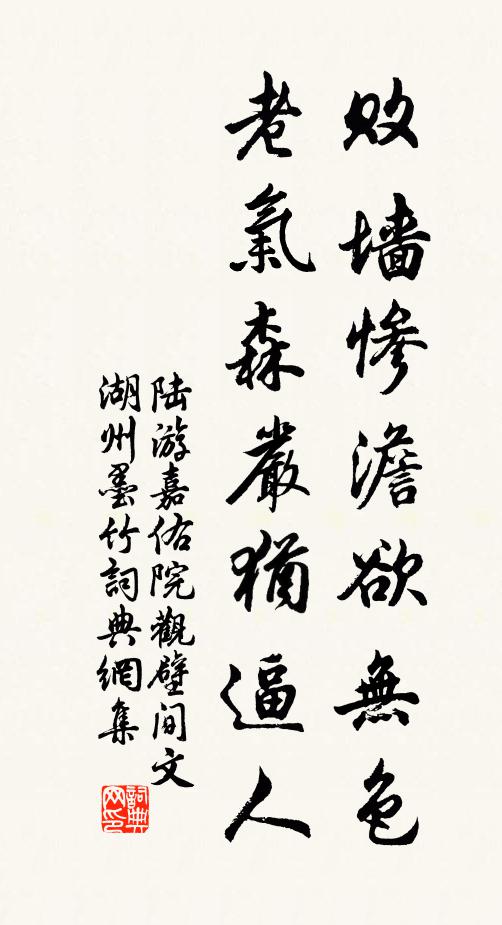 败墙慘澹欲無色
老氣森嚴猶逼人
陆游嘉佑院觀壁间文
湖州墨竹詞典網集
詞典网印